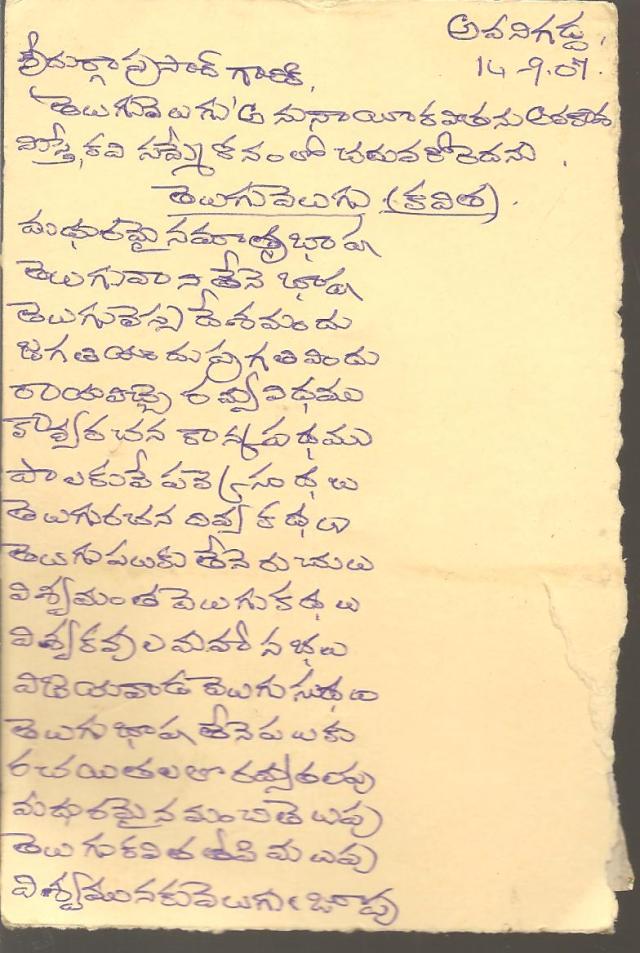 అవనిగడ్డ,
14-9-07.
శ్రీదుర్గాప్రసాద్ గారికి,
'తెలుగువెలుగు' అనునాయీకవితను
వస్తే, కవి సమ్మేళనంలో చదువకోరెదను.
తెలుగువెలుగు (కవిత).
మధురమైనమాతృభాష
తెలుగువాని తేనె భాష
తెలుగువెన్న దేశమందు
జగతియందు ప్రగతివిందు
రమ్యవిధము
కావ్యరచన కాన్కపధము
పాలకులే సుధలు
తెలుగురచన దివ్యకథలు
తెలుగుపలుకు తేనెరుచులు
విశ్వమంతవెలుగుకథలు
విశ్వకవులమహాసభలు
విజయవాడతెలుగుసుధలు
తెలుగుభాషతేనెపలుకు
రచయితలతా
మధురమైనమంచితెలుపు
తెలుగుకవితతీపిమలుపు
విశ్వమునకువెలుగుజూపు